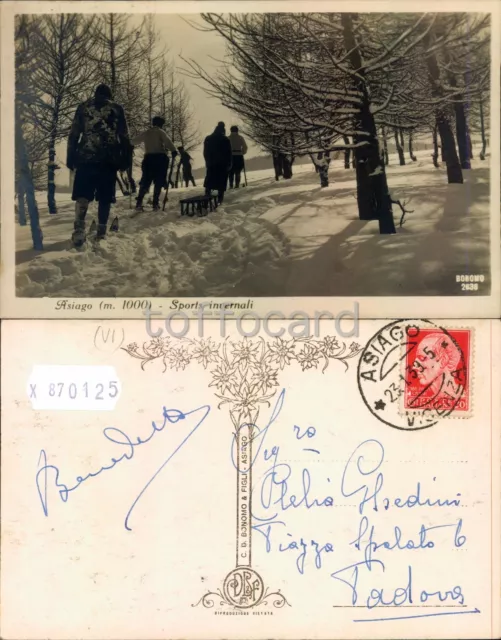 BONOMO
2636
Asiago (m. 1000) - Sports invernali
toffocard
(VI)
X 870125
ASIAGO
Benedetta
Sig.ra
Clelia Ghedini
Piazza Spalato 6
Padova
C. D. BONOMO & FIGLI - ASIAGO
RIPRODUZIONE VIETATA